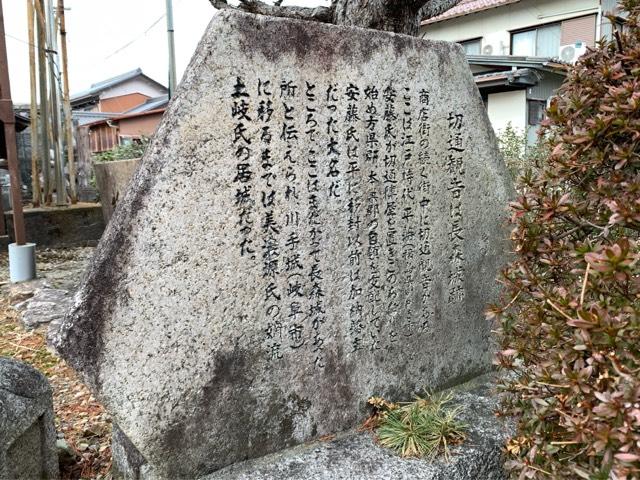 切通観音は長森城跡
商店街の続く街中に切通観音がある
ここは江戸時代、平城
安藤氏が切通陣屋を置きこのあたりを
始め方県郡、本巣郡の自領を支配していた
安藤氏は平に移封以前は加納城主
だった大名だ。
ところで、ここはまたかつて長森城があった
所と伝えられ、川手城(岐阜市)
に移るまでは美濃源氏の嫡流
土岐氏の居城だった。